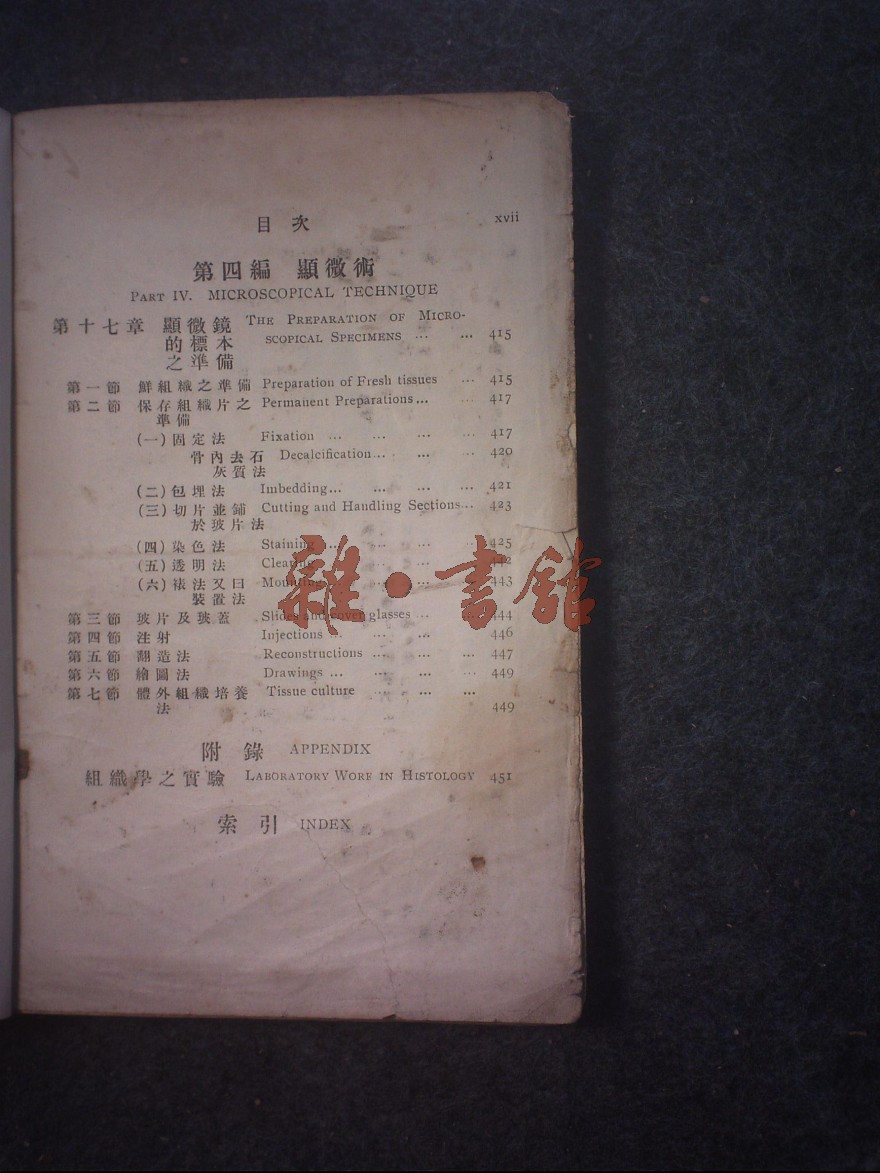 目次 xvii
第四編 顯微術
PART IV. MICROSCOPICAL TECHNIQUE
第十七章 顯微鏡 THE PREPARATION OF MICRO-
的標本 SCOPICAL SPECIMENS ... ... 415
之準備
第一節 鮮組織之準備 Preparation of Fresh tissues ... 415
第二節 保存組織片之 Permanent Preparations ... ... 417
準備
(一) 固定法 Fixation ... ... ... ... 417
骨內去石 Decalcification ... ... ... 420
灰質法
(二) 包埋法 Imbedding ... ... ... ... 421
(三) 切片並鋪 Cutting and Handling Sections ... 423
於玻片法
(四) 染色法 Staining ... ... ... ... 425
(五) 透明法 Clearing ... ... ... 442
(六) 裱法又曰 Mounting ... ... ... 443
裝置法
第三節 玻片及玻蓋 Slides and cover glasses ... ... 444
第四節 注射 Injections ... ... ... 446
第五節 翻造法 Reconstructions ... ... ... 447
第六節 繪圖法 Drawings ... ... ... ... 449
第七節 體外組織培養 Tissue culture ... ... ...
法 449
附錄 APPENDIX
組織學之實驗 LABORATORY WORF IN HISTOLOGY 451
索引 INDEX
雜·書館